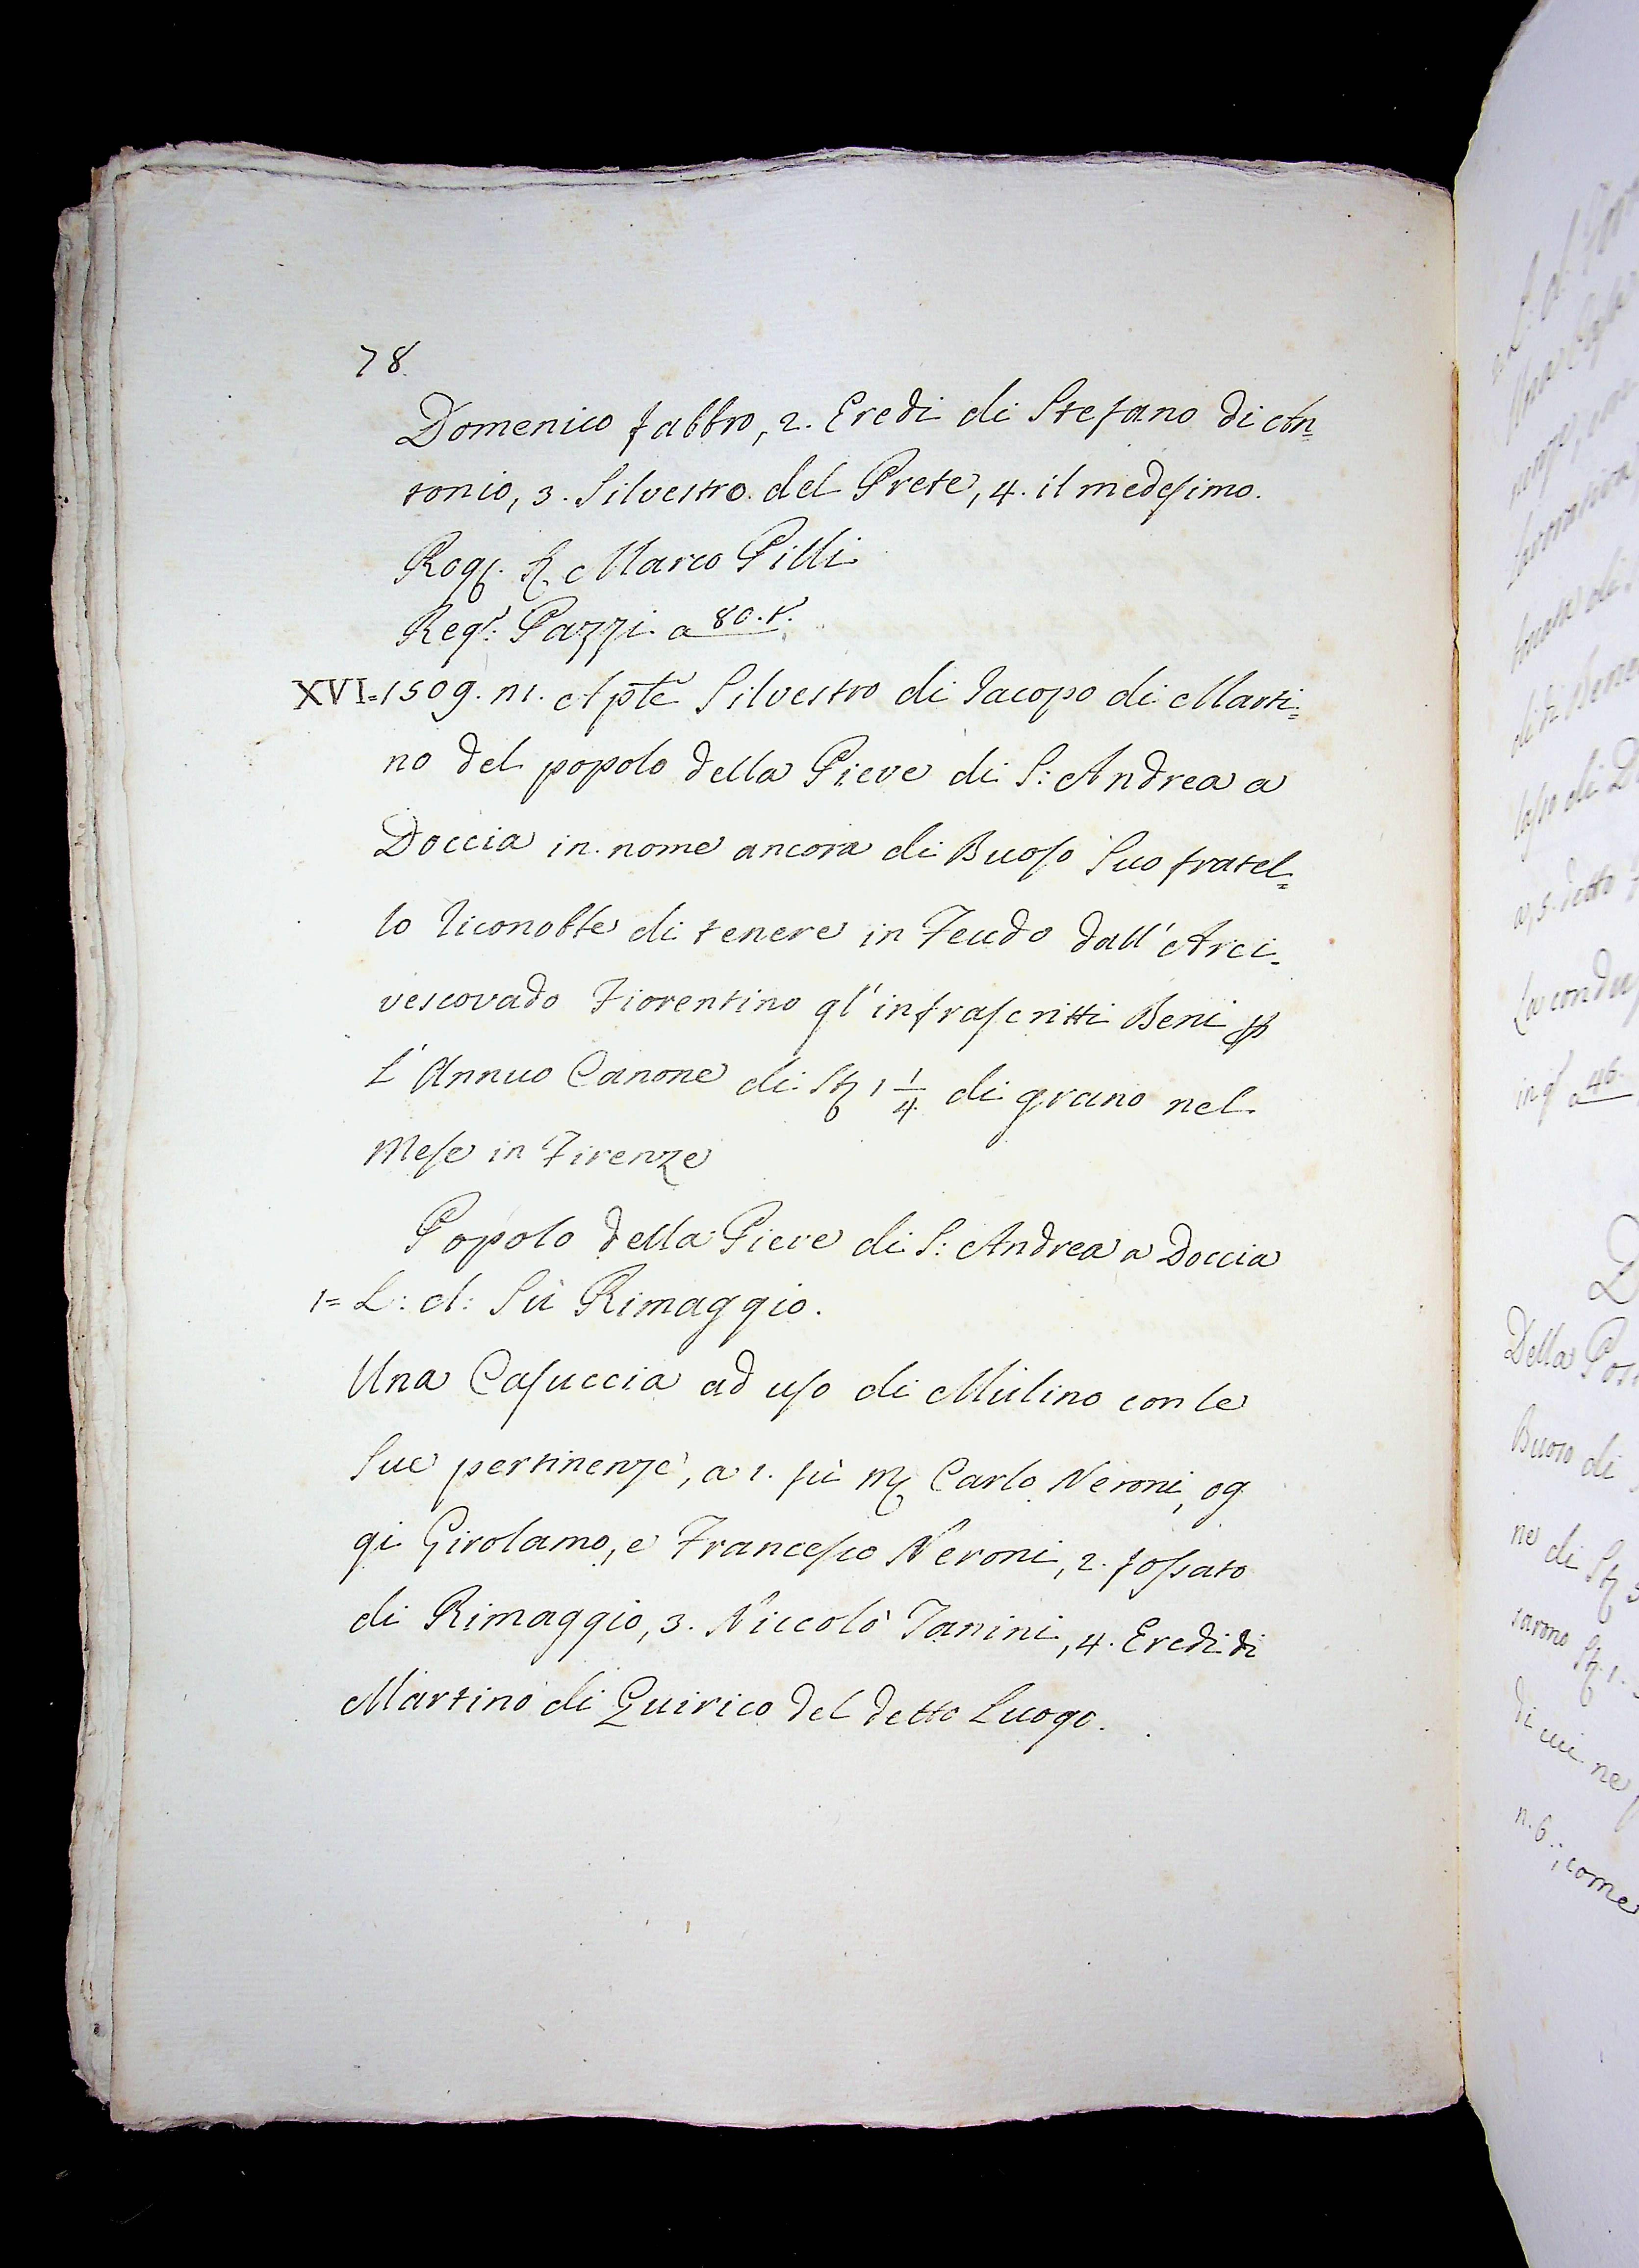 78.
Domenico fabbro, 2. Eredi di Stefano di An=
tonio, 3. Silvestro del Prete, 4. il medesimo.
Rog. Marco Pilli
Reg.º: Pazzi a 80. t.
XVI=1509. n1. Aple Silvestro di Jacopo di Marti=
no del popolo della Pieve di S: Andrea a
Doccia in nome ancora di Buoso Suo fratel=
lo riconobbe di tenere in Feudo dall' Arci=
vescovado Fiorentino gl' infrascritti Beni p
l' Annuo Canone di St 1 1/4 di grano nel
Mese in Firenze
Popolo della Pieve di S: Andrea a Doccia
1= L: d: Sù Rimaggio.
Una Casuccia ad uso di Mulino con le
Sue pertinenze, a 1. fù M Carlo Neroni, og
gi Girolamo, e Francesco Neroni, 2. fossato
di Rimaggio, 3. Niccolò Janini, 4. Eredi di
Martino di Quirico del detto Luogo.
Della
Buoso di
ne di St
sarono St. 1.
di cui ne
n. 6.; come